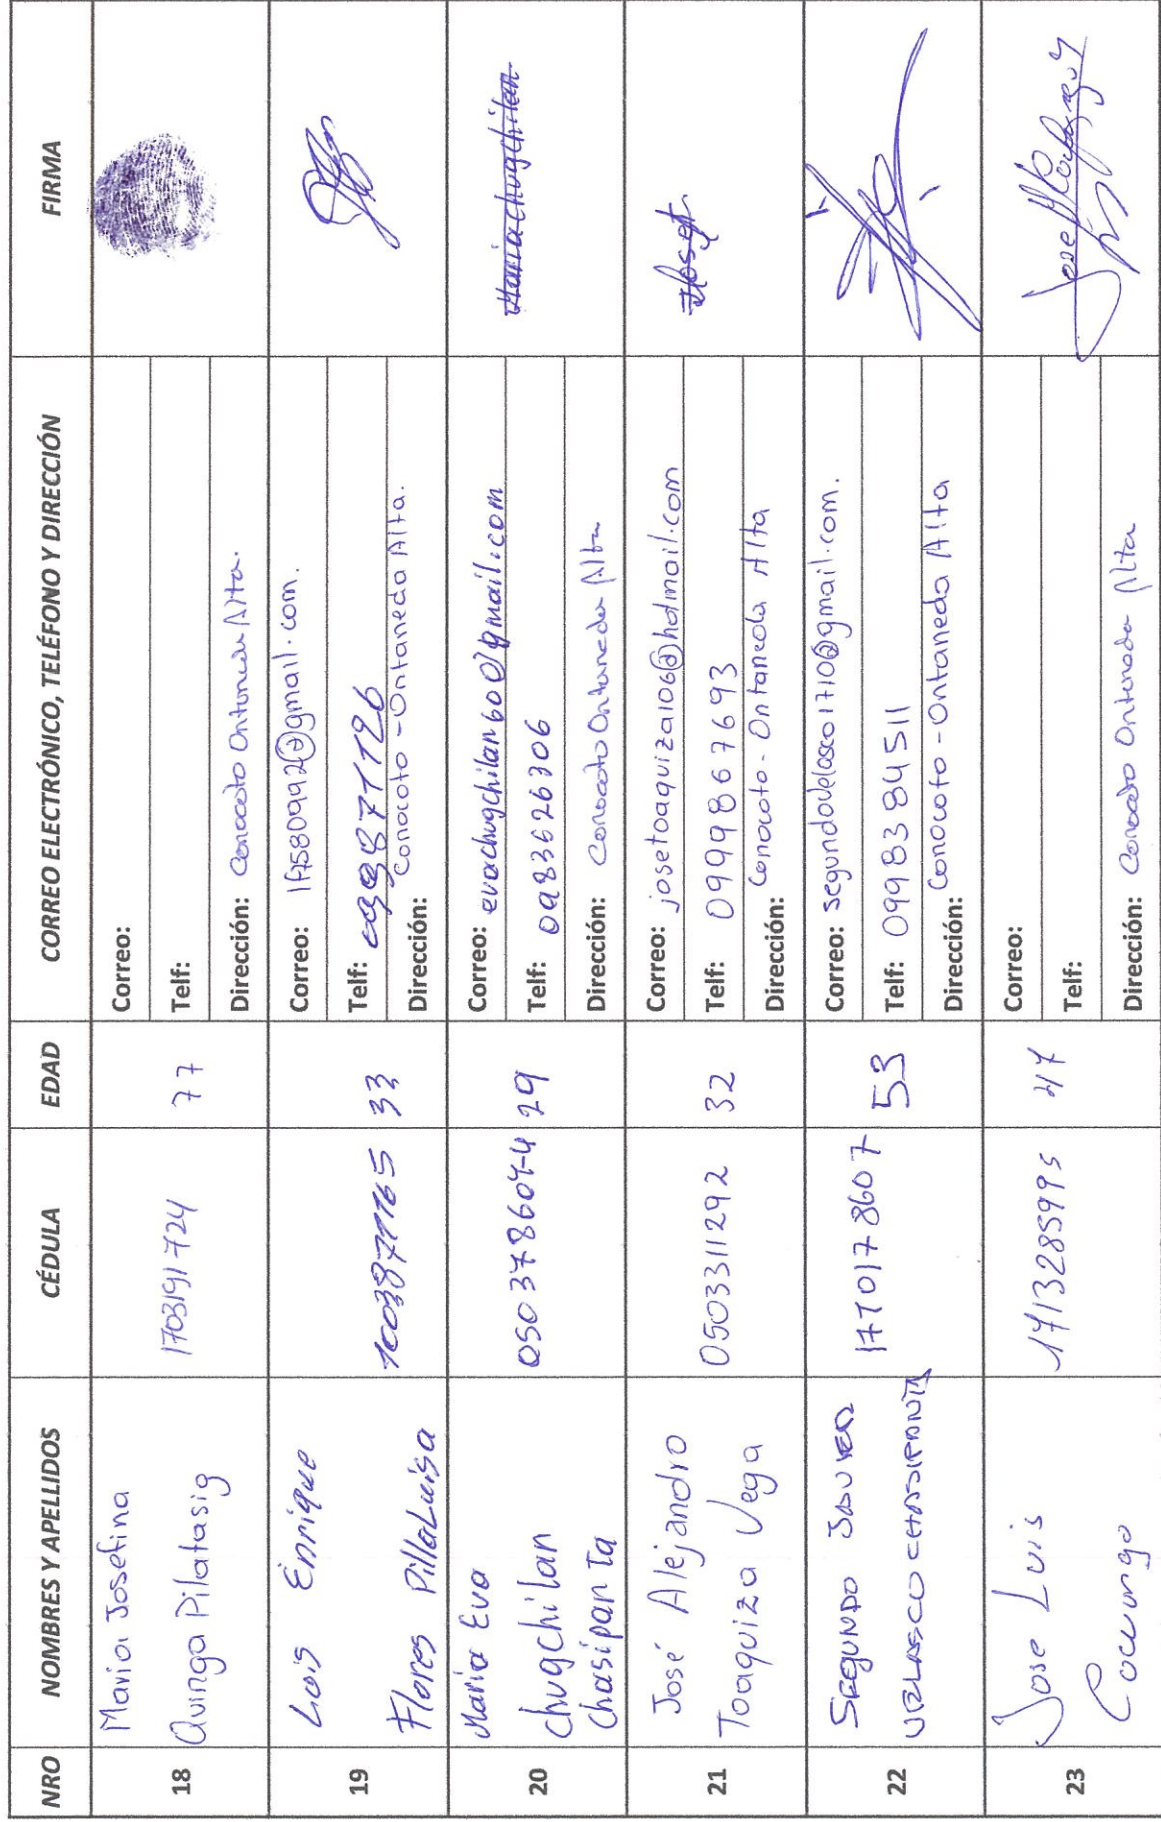 NRO NOMBRES Y APELLIDOS CÉDULA EDAD CORREO ELECTRÓNICO, TELÉFONO Y DIRECCIÓN FIRMA
18 Maria Josefina
Quinga Pilatasig
1703191724 77
Correo:
Telf:
Dirección: Conocoto Ontaneda Alta.
19 Luis Enrique
Flores PillaLuisa
1003871165 33
Correo: lf4580992@gmail.com.
Telf: 0998871126
Dirección: Conocoto - Ontaneda Alta.
20 Maria Eva
Chugchilan
Chasipanta
050378604-4 29
Correo: evachugchilan60@gmail.com
Telf: 0983626306
Dirección: Conocoto Ontaneda Alta
Mariachugchilan
21 José Alejandro
Toaquiza Vega
0503311292 32
Correo: josetoaquiza106@hotmail.com
Telf: 0999867693
Dirección: Conocoto - Ontaneda Alta
Josef
22 SEGUNDO JAVIER
VELASCO CHASIPANTA
1710178607 53
Correo: segundovelasco1710@gmail.com.
Telf: 0998384511
Dirección: Conocoto - Ontaneda Alta
23 Jose Luis
Cocungo
1713285995 47
Correo:
Telf:
Dirección: Conocoto Ontaneda Alta